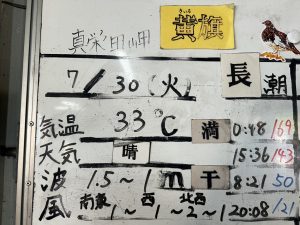 真栄田岬
きいろ
黄旗
7/30(火) 長潮
気温 33℃ 満 0:48 169
天気 晴 15:36 143
波 1.5~1m 干 8:21 50
南東 西 北西
風 1~1~2~1 20:08 121